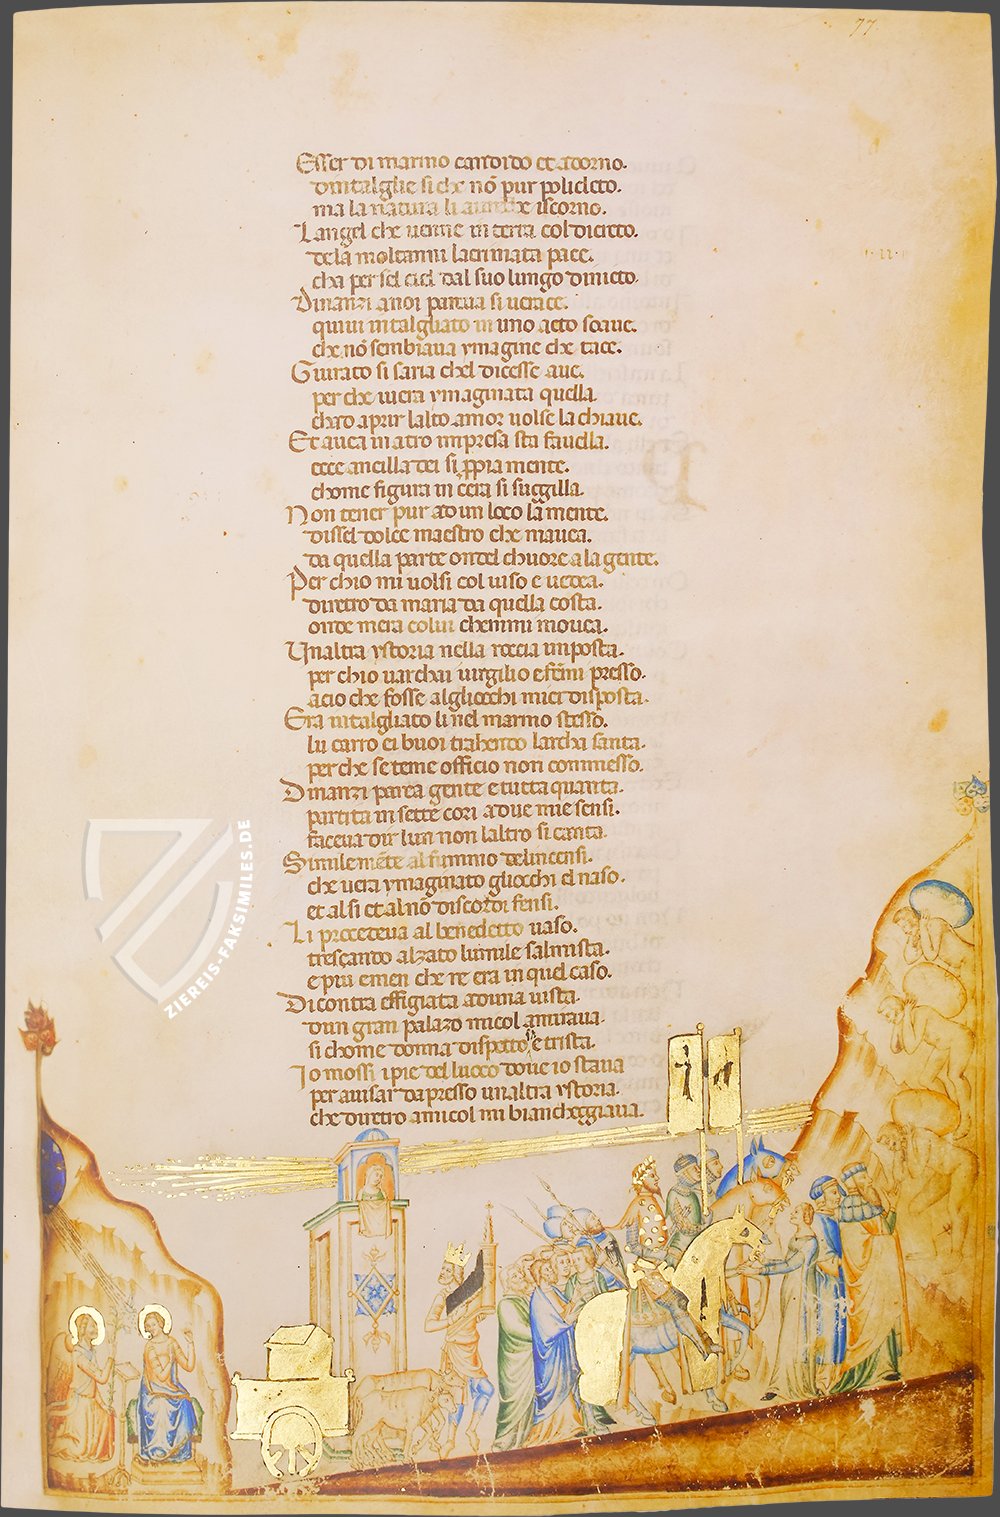 77
Esser di marmo candido et adorno.
dintalglie si che nõ pur policleto.
ma la natura li aurebbe iscorno.
Langel che uenne in terra col dicreto.
dela moltanni lacrimata pace.
cha perse el ciel dal suo lungo diuieto.
Dinanzi anoi pareua si uerace.
quiui intalgliato in uno acto soaue.
che nõ sembiaua ymagine che tace.
Giurato si saria chel dicesse aue.
per che iuera ymaginata quella.
chad aprir lalto amor uolse la chiaue.
Et auea in acto impresa sta fauella.
ecce ancilla dei si ppria mente.
chome figura in cera si suggilla.
Non tener pur ad un loco la mente.
dissel dolce maestro che mauea.
da quella parte ondel chuore a la gente.
Per chio mi uolsi col uiso e uedea.
diretro da maria da quella costa.
onde mera colui chemmi mouea.
Unaltra ystoria nella roccia imposta.
per chio uarchai uirgilio e femi presso.
acio che fosse algliocchi miei disposta.
Era intalgliato li nel marmo stesso.
lu carro ei buoi trahendo larcha santa.
per che se teme officio non commesso.
Dinanzi parea gente e tutta quanta.
partita in sette cori adue mie sensi.
faceua dir lun non laltro si canta.
Simile mẽte al fummo delincensi.
che uera ymaginato gliocchi el naso.
et al si et al nõ discordi fensi.
Li precedeua al benedetto uaso.
trescando alzato lumile salmista.
e piu emen che re era in quel caso.
Dicontra effigiata aduna uista.
dun gran palazo micol amiraua.
si chome donna dispettosa e trista.
Io mossi i pie del luoco doue io staua
per auisar da presso unaltra ystoria.
che diretro amicol mi biancheggiaua.
ZIEREIS-FAKSIMILES.DE